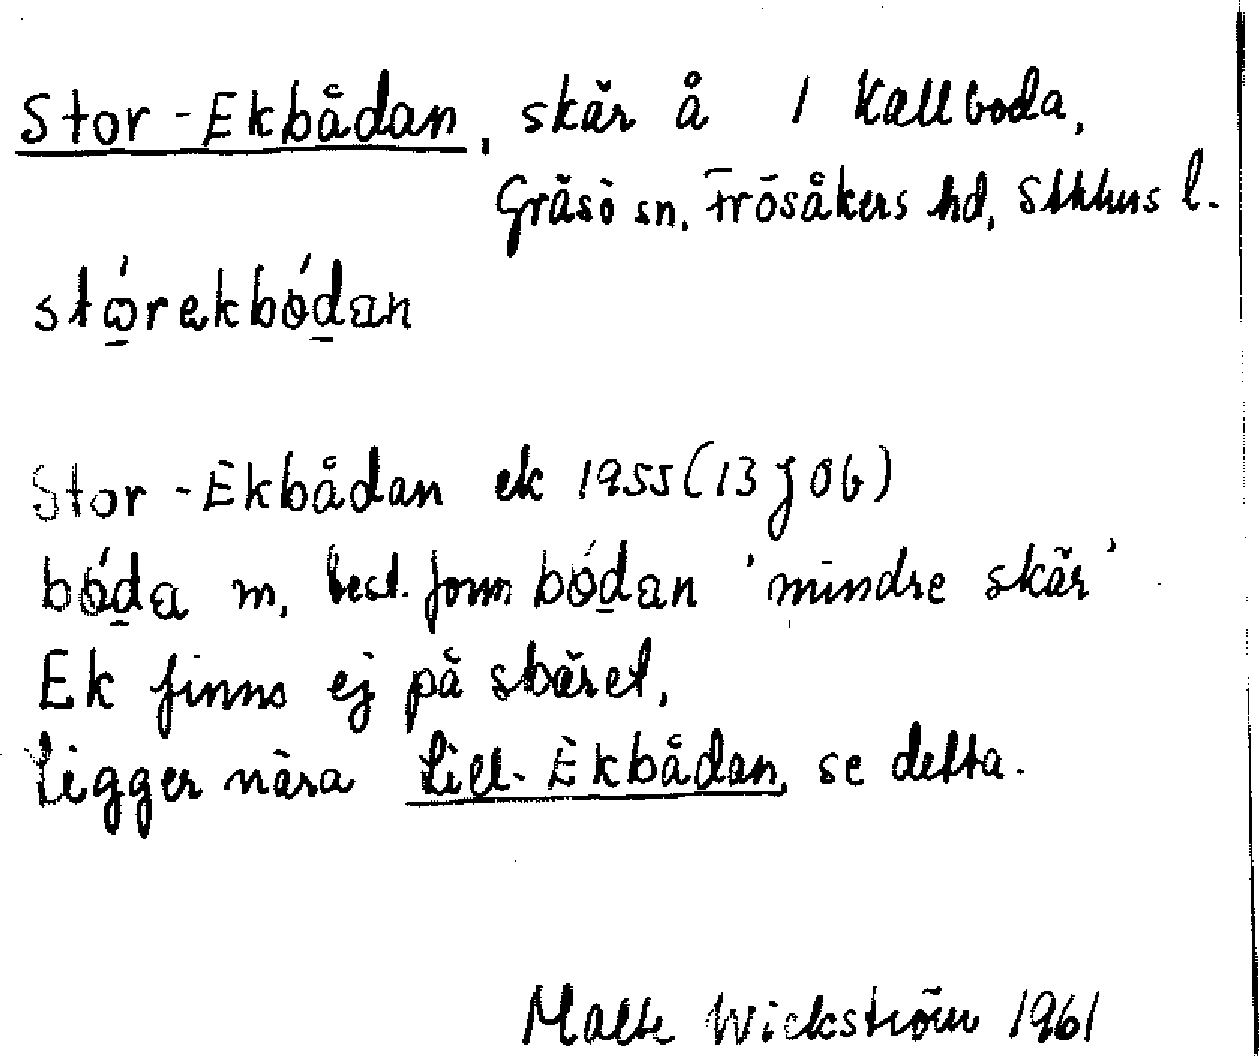 Stor-Ekbådan, skär å 1 Kallboda,
Gräsö sn, Frösåkers hd, Sthlms l.
stώ̲rekbó̲dan
Stor-Ekbådan ek 1955 (13 J 0b)
bó̲da m, best. form bó̲dan 'mindre skär'
Ek finns ej på skäret,
Ligger nära Lill-Ekbådan, se detta.
Malte Wickström 1961